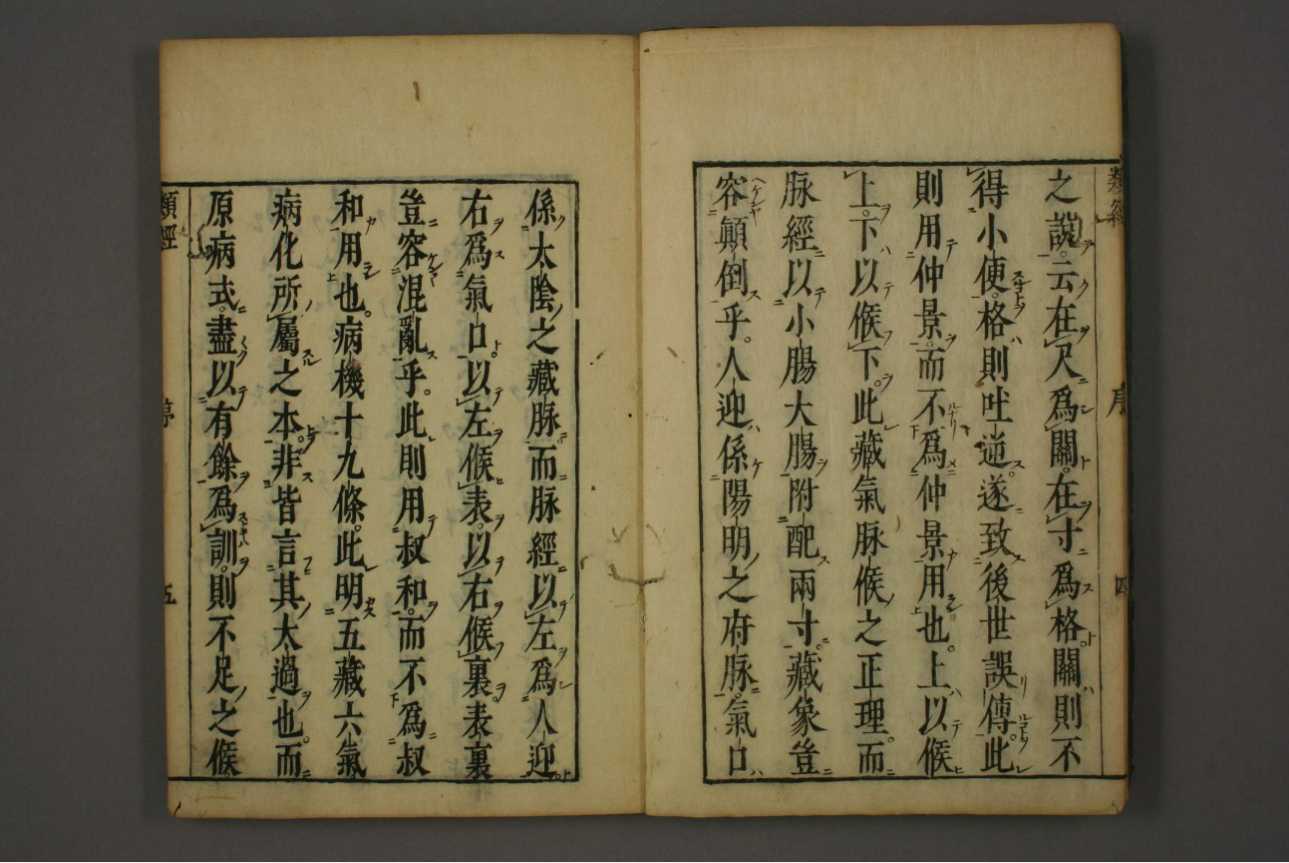 類經 序 四
之說云在尺爲關在寸爲格關則不
得小便格則吐逆遂致後世誤傳此
則用仲景而不爲仲景用也上以候
上下以候下此藏氣脉候之正理而
脉經以小腸大腸附配兩寸藏象豈
容顛倒乎人迎係陽明之府脉氣口
係太陰之藏脉而脉經以左爲人迎
右爲氣口以左候表以右候裏表裏
豈容混亂乎此則用叔和而不爲叔
和用也病機十九條此明五藏六氣
病化所屬之本非皆言其太過也而
原病式盡以有餘爲訓則不足之候
類經 五